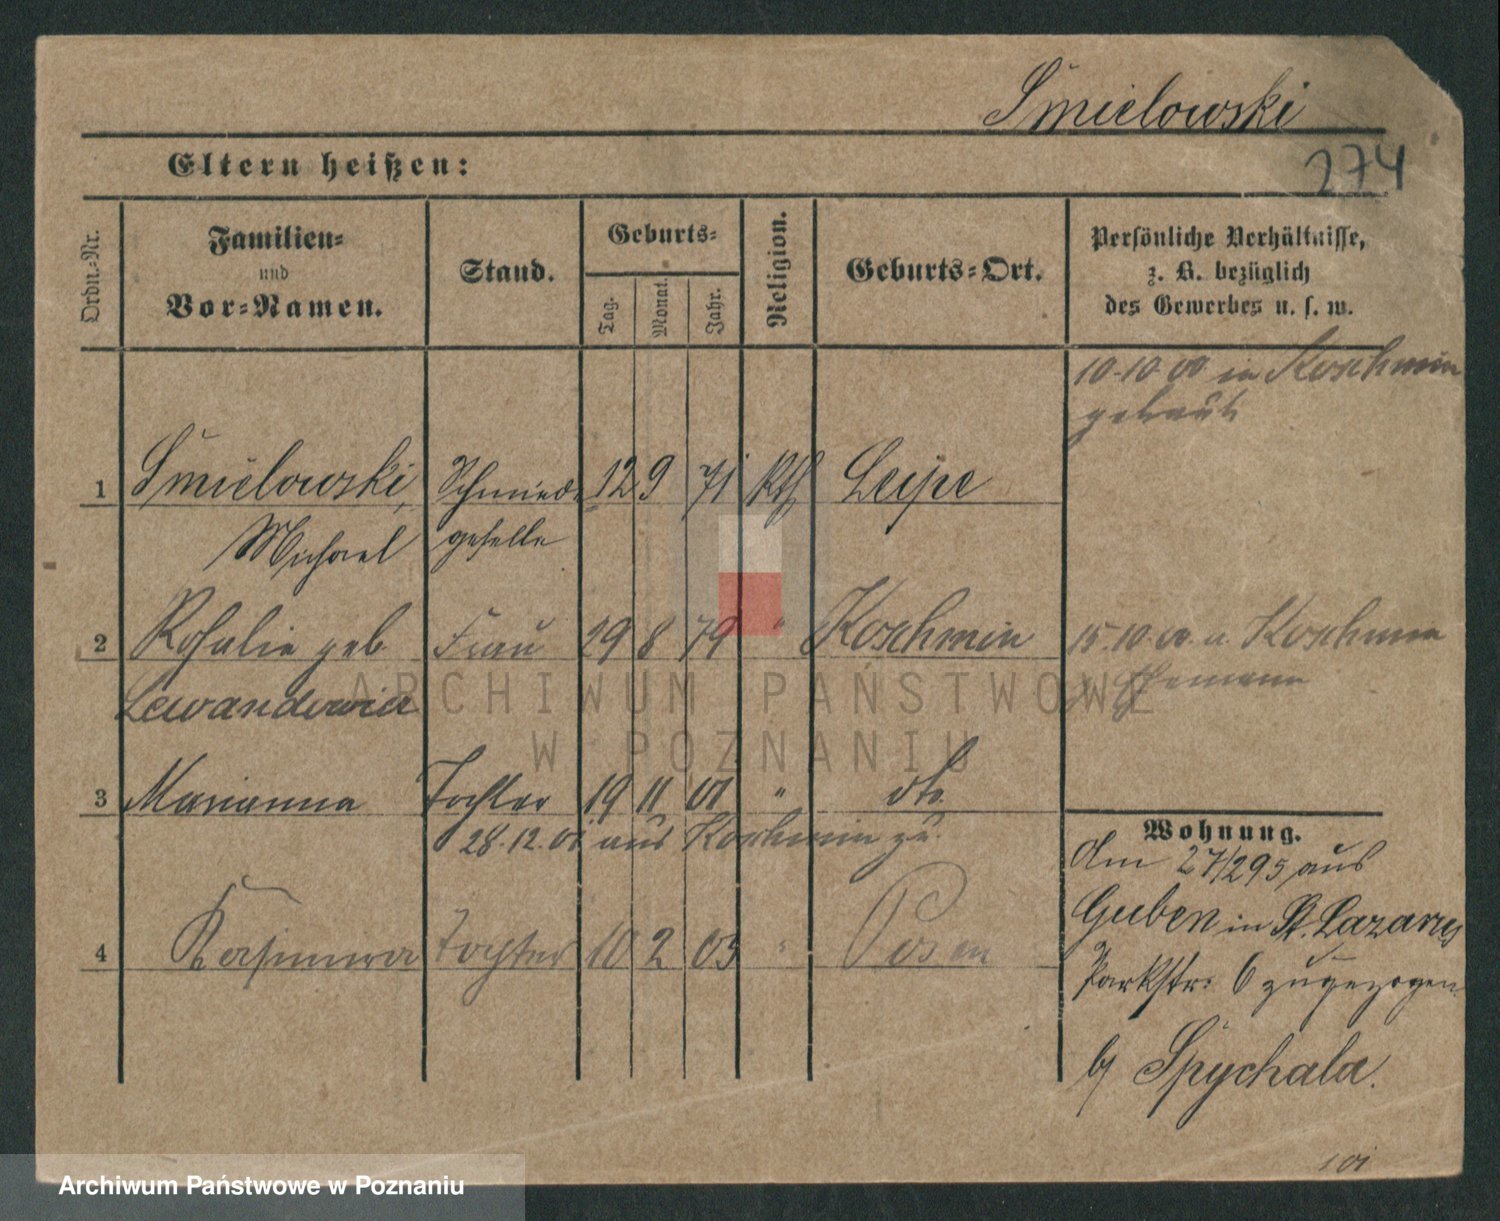 Śmielowski
274
Eltern heißen:
Ordn.-Nr.
Familien-
und
Vor-Namen.
Stand.
Geburts-
Tag.
Monat.
Jahr.
Religion.
Geburts-Ort.
Persönliche Verhältnisse,
z. B. bezüglich
des Gewerbes u. s. w.
10.10.00 in Koschmin
getraut
1 Śmielowski, Schmiede 12 9 71 Kth Leipe
Michael geselle
2 Rosalie geb. Frau 29 8 79 " Koschmin
15.10.00 v. Koschmin
Lewandowicz
Ehemann
3 Marianna Tochter 19 11 01 " dto.
28.12.01 aus Koschmin zu.
4 Kasimira Tochter 10 2 03 " Posen
Wohnung.
Am 27/2 95 aus
Guben in St. Lazarus
Parkstr. 6 zugezogen
b/ Spychala.
101
ARCHIWUM PAŃSTWOWE
W POZNANIU
Archiwum Państwowe w Poznaniu